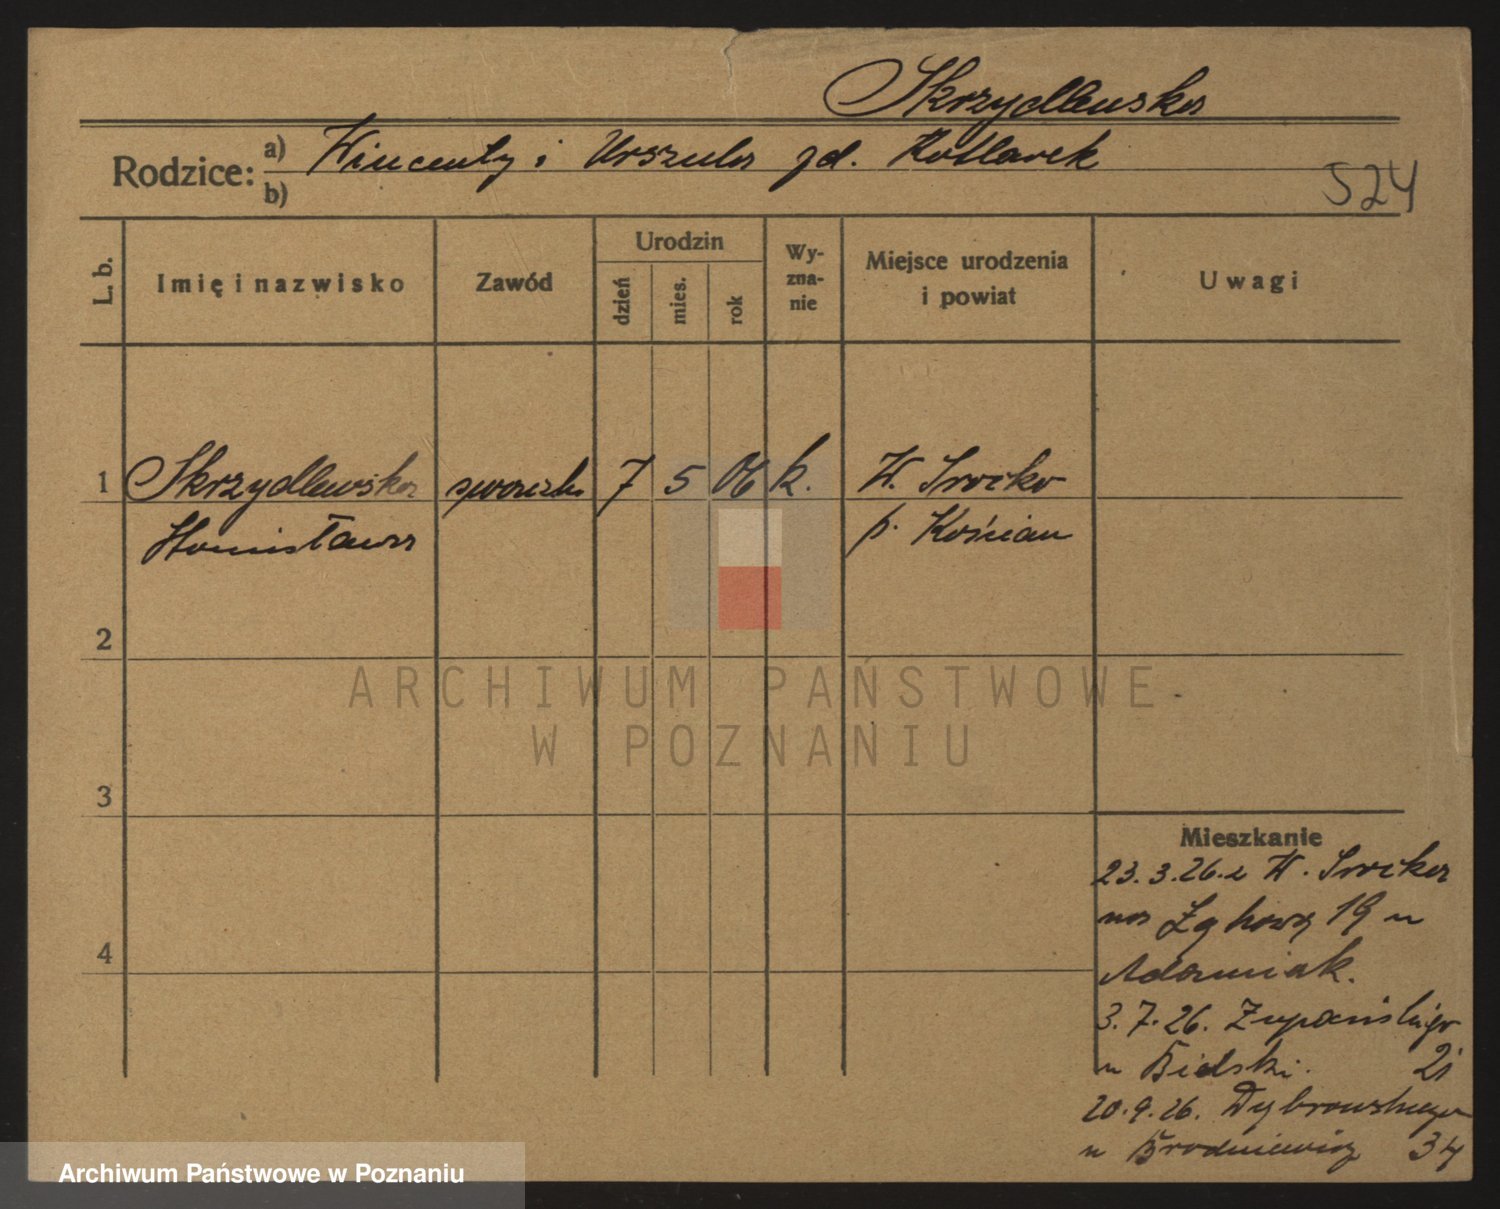 Skrzydlewska
Rodzice: a) Wincenty i Urszula zd. Kotlarek
b)
524
L. b.
Imię i nazwisko
Zawód
Urodzin
dzień
mies.
rok
Wy-
zna-
nie
Miejsce urodzenia
i powiat
Uwagi
1 Skrzydlewska 7 5 06 k. W. Srocko
Stanisława p. Kościan
2
3
4
ARCHIWUM PAŃSTWOWE
W POZNANIU
Mieszkanie
23.3.26. z W. Srocka
na 19 u
Adamiak.
3.7.26. Żupańskiego
u Bielski. 21
20.9.26. Dąbrowskiego
u Brodniewicz 34
Archiwum Państwowe w Poznaniu